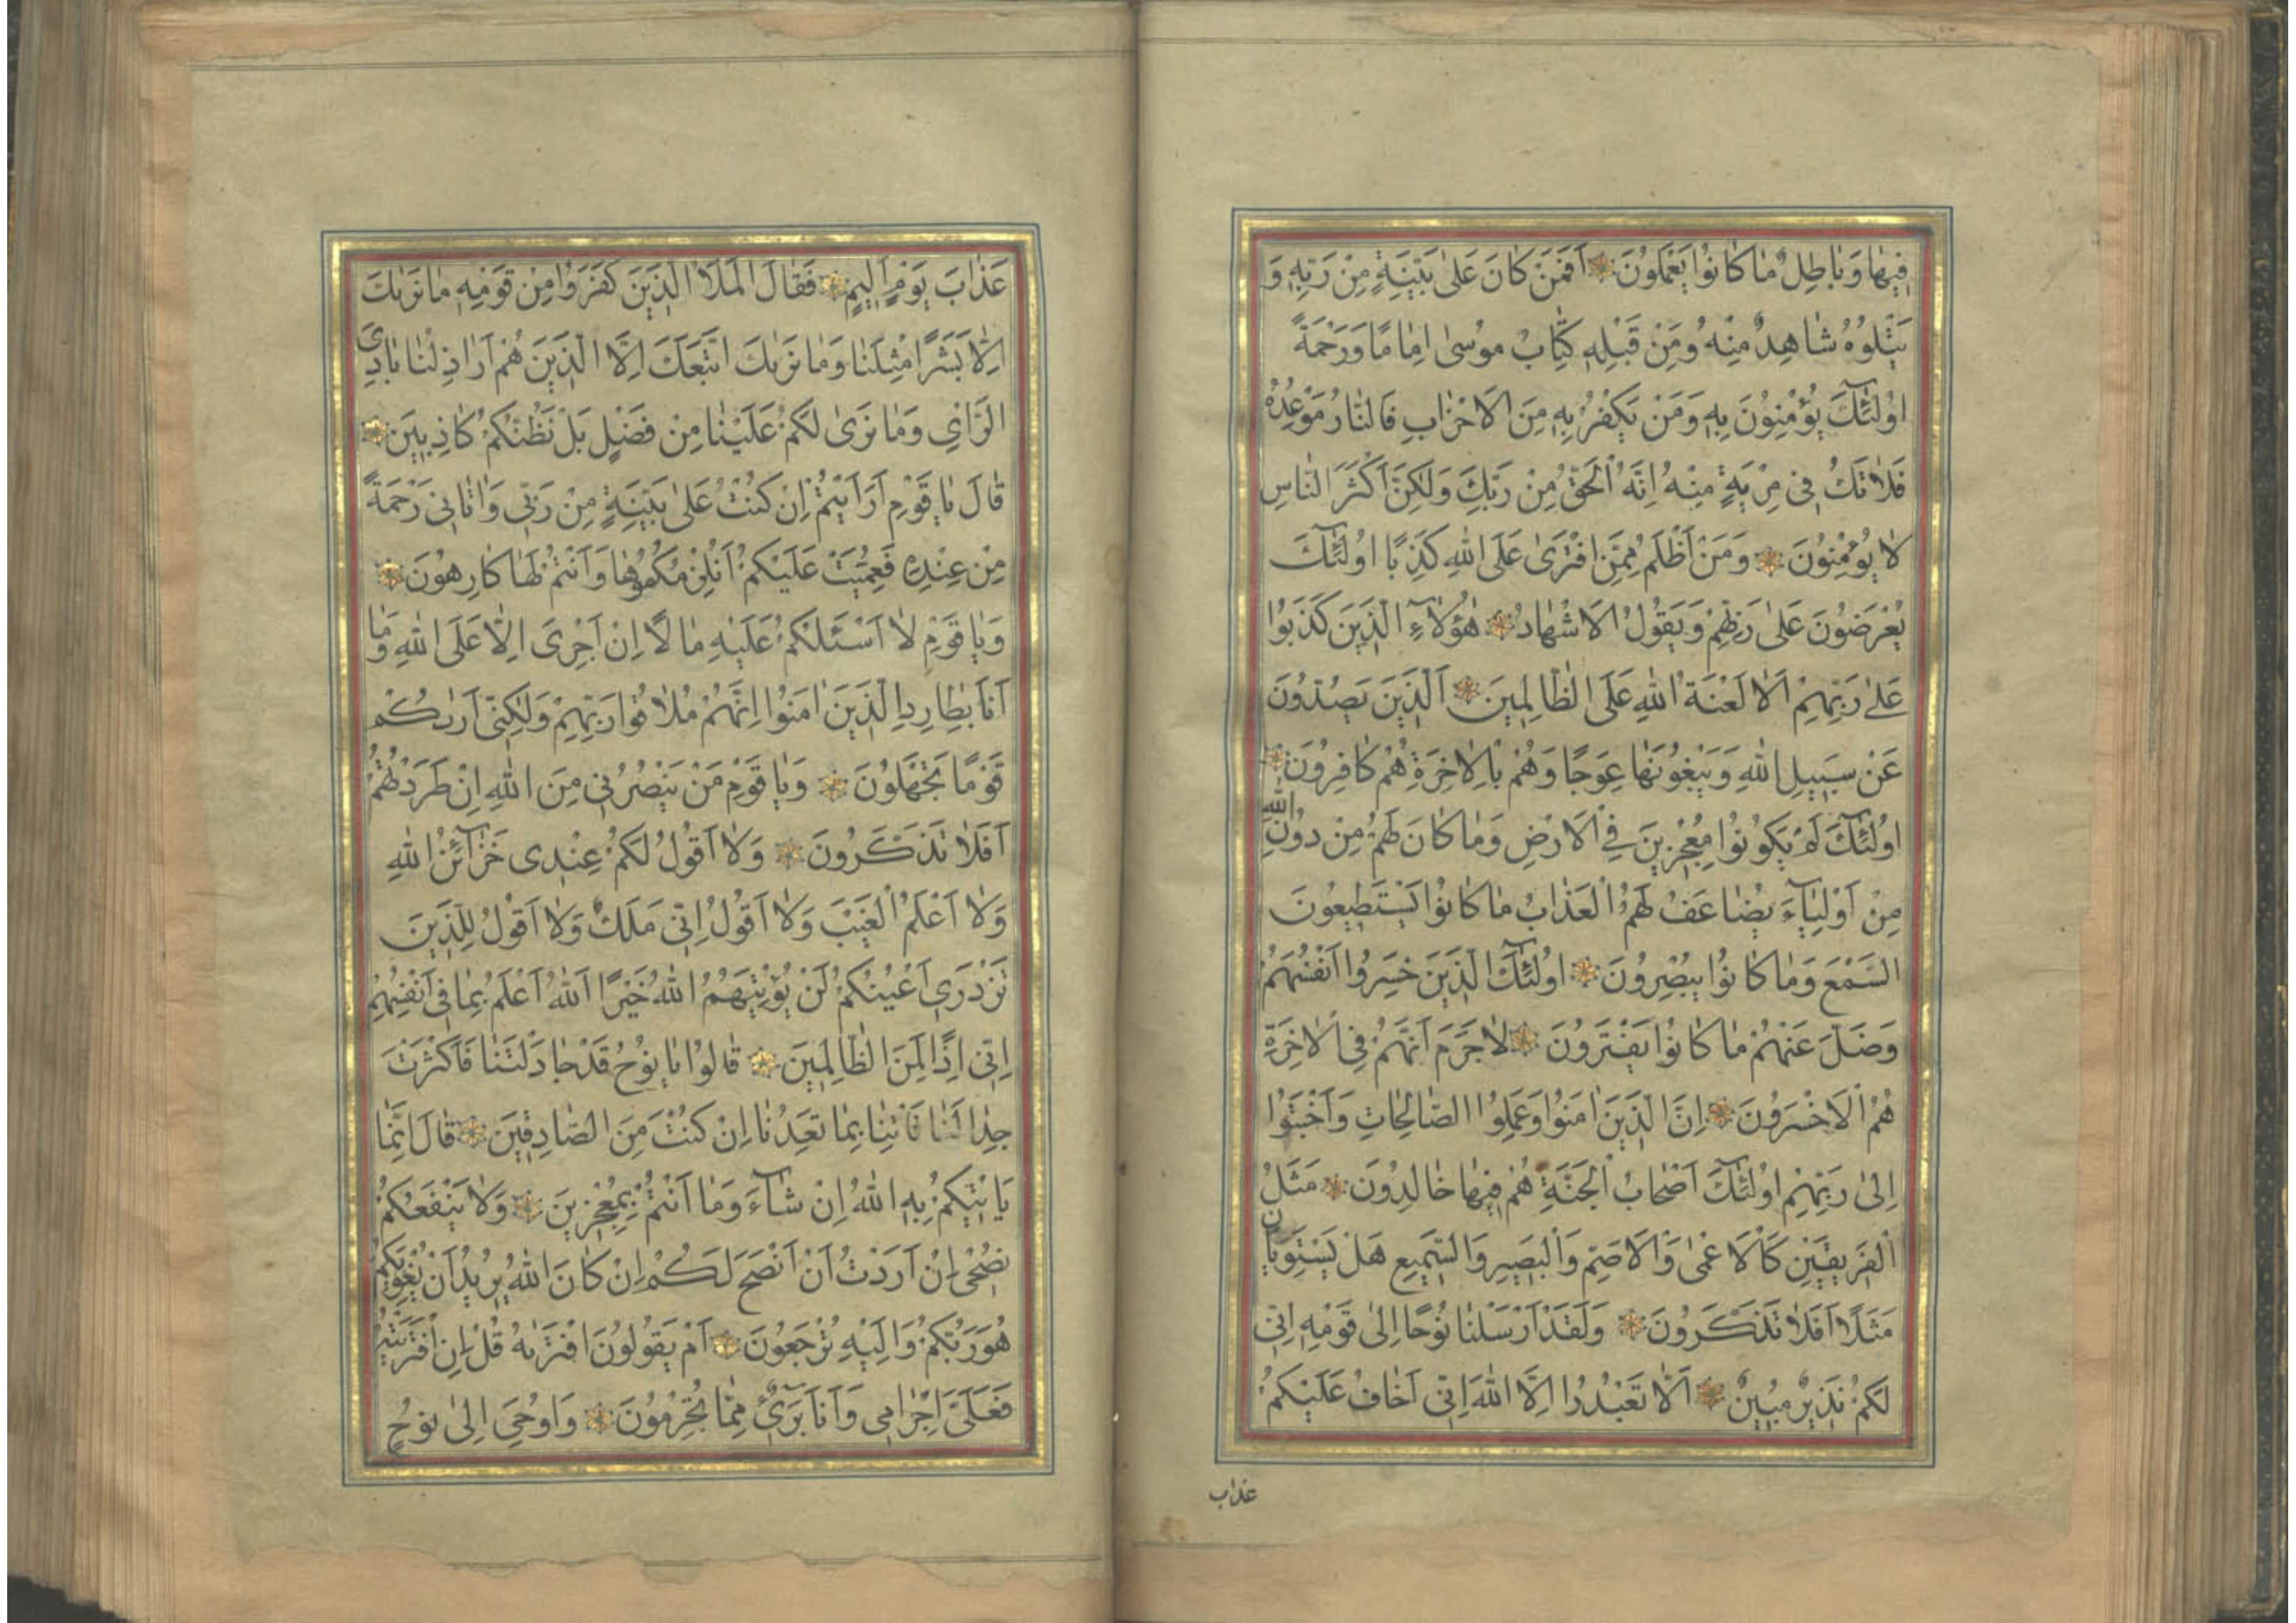 فِيهَا وَبَاطِلٌ مَا كَانُوا يَعْمَلُونَ أَفَمَنْ كَانَ عَلَىٰ بَيِّنَةٍ مِنْ رَبِّهِ وَ
يَتْلُوهُ شَاهِدٌ مِنْهُ وَمِنْ قَبْلِهِ كِتَابُ مُوسَىٰ اِمَامًا وَرَحْمَةً
اُولَٰئِكَ يُؤْمِنُونَ بِهِ وَمَنْ يَكْفُرْ بِهِ مِنَ الْاَحْزَابِ فَالنَّارُ مَوْعِدُهُ
فَلَا تَكُ فِى مِرْيَةٍ مِنْهُ اِنَّهُ الْحَقُّ مِنْ رَبِّكَ وَلَٰكِنَّ اَكْثَرَ النَّاسِ
لَا يُؤْمِنُونَ وَمَنْ اَظْلَمُ مِمَّنِ افْتَرَىٰ عَلَى اللهِ كَذِبًا اُولَٰئِكَ
يُعْرَضُونَ عَلَىٰ رَبِّهِمْ وَيَقُولُ الْاَشْهَادُ هَٰؤُلَاءِ الَّذِينَ كَذَبُوا
عَلَىٰ رَبِّهِمْ اَلَا لَعْنَةُ اللهِ عَلَى الظَّالِمِينَ اَلَّذِينَ يَصُدُّونَ
عَنْ سَبِيلِ اللهِ وَيَبْغُونَهَا عِوَجًا وَهُمْ بِالْاٰخِرَةِ هُمْ كَافِرُونَ
اُولَٰئِكَ لَمْ يَكُونُوا مُعْجِزِينَ فِى الْاَرْضِ وَمَا كَانَ لَهُمْ مِنْ دُونِ اللهِ
مِنْ اَوْلِيَاءَ يُضَاعَفُ لَهُمُ الْعَذَابُ مَا كَانُوا يَسْتَطِيعُونَ
السَّمْعَ وَمَا كَانُوا يُبْصِرُونَ اُولَٰئِكَ الَّذِينَ خَسِرُوا اَنْفُسَهُمْ
وَضَلَّ عَنْهُمْ مَا كَانُوا يَفْتَرُونَ لَا جَرَمَ اَنَّهُمْ فِى الْاٰخِرَةِ
هُمُ الْاَخْسَرُونَ اِنَّ الَّذِينَ اٰمَنُوا وَعَمِلُوا الصَّالِحَاتِ وَاَخْبَتُوا
اِلَىٰ رَبِّهِمْ اُولَٰئِكَ اَصْحَابُ الْجَنَّةِ هُمْ فِيهَا خَالِدُونَ مَثَلُ
الْفَرِيقَيْنِ كَالْاَعْمَىٰ وَالْاَصَمِّ وَالْبَصِيرِ وَالسَّمِيعِ هَلْ يَسْتَوِيَانِ
مَثَلًا اَفَلَا تَذَكَّرُونَ وَلَقَدْ اَرْسَلْنَا نُوحًا اِلَىٰ قَوْمِهِ اِنِّى
لَكُمْ نَذِيرٌ مُبِينٌ اَلَّا تَعْبُدُوا اِلَّا اللهَ اِنِّى اَخَافُ عَلَيْكُمْ
عذاب
عَذَابَ يَوْمٍ اَلِيمٍ فَقَالَ الْمَلَاُ الَّذِينَ كَفَرُوا مِنْ قَوْمِهِ مَا نَرٰىكَ
اِلَّا بَشَرًا مِثْلَنَا وَمَا نَرٰىكَ اتَّبَعَكَ اِلَّا الَّذِينَ هُمْ اَرَاذِلُنَا بَادِىَ
الرَّاْىِ وَمَا نَرَىٰ لَكُمْ عَلَيْنَا مِنْ فَضْلٍ بَلْ نَظُنُّكُمْ كَاذِبِينَ
قَالَ يَا قَوْمِ اَرَاَيْتُمْ اِنْ كُنْتُ عَلَىٰ بَيِّنَةٍ مِنْ رَبِّى وَاٰتَانِى رَحْمَةً
مِنْ عِنْدِهِ فَعُمِّيَتْ عَلَيْكُمْ اَنُلْزِمُكُمُوهَا وَاَنْتُمْ لَهَا كَارِهُونَ
وَيَا قَوْمِ لَا اَسْئَلُكُمْ عَلَيْهِ مَالًا اِنْ اَجْرِىَ اِلَّا عَلَى اللهِ وَمَا
اَنَا بِطَارِدِ الَّذِينَ اٰمَنُوا اِنَّهُمْ مُلَاقُوا رَبِّهِمْ وَلَٰكِنِّى اَرٰىكُمْ
قَوْمًا تَجْهَلُونَ وَيَا قَوْمِ مَنْ يَنْصُرُنِى مِنَ اللهِ اِنْ طَرَدْتُهُمْ
اَفَلَا تَذَكَّرُونَ وَلَا اَقُولُ لَكُمْ عِنْدِى خَزَائِنُ اللهِ
وَلَا اَعْلَمُ الْغَيْبَ وَلَا اَقُولُ اِنِّى مَلَكٌ وَلَا اَقُولُ لِلَّذِينَ
تَزْدَرِى اَعْيُنُكُمْ لَنْ يُؤْتِيَهُمُ اللهُ خَيْرًا اَللهُ اَعْلَمُ بِمَا فِى اَنْفُسِهِمْ
اِنِّى اِذًا لَمِنَ الظَّالِمِينَ قَالُوا يَا نُوحُ قَدْ جَادَلْتَنَا فَاَكْثَرْتَ
جِدَالَنَا فَاْتِنَا بِمَا تَعِدُنَا اِنْ كُنْتَ مِنَ الصَّادِقِينَ قَالَ اِنَّمَا
يَاْتِيكُمْ بِهِ اللهُ اِنْ شَاءَ وَمَا اَنْتُمْ بِمُعْجِزِينَ وَلَا يَنْفَعُكُمْ
نُصْحِى اِنْ اَرَدْتُ اَنْ اَنْصَحَ لَكُمْ اِنْ كَانَ اللهُ يُرِيدُ اَنْ يُغْوِيَكُمْ
هُوَ رَبُّكُمْ وَاِلَيْهِ تُرْجَعُونَ اَمْ يَقُولُونَ افْتَرٰىهُ قُلْ اِنِ افْتَرَيْتُهُ
فَعَلَىَّ اِجْرَامِى وَاَنَا بَرِىءٌ مِمَّا تُجْرِمُونَ وَاُوحِىَ اِلَىٰ نُوحٍ